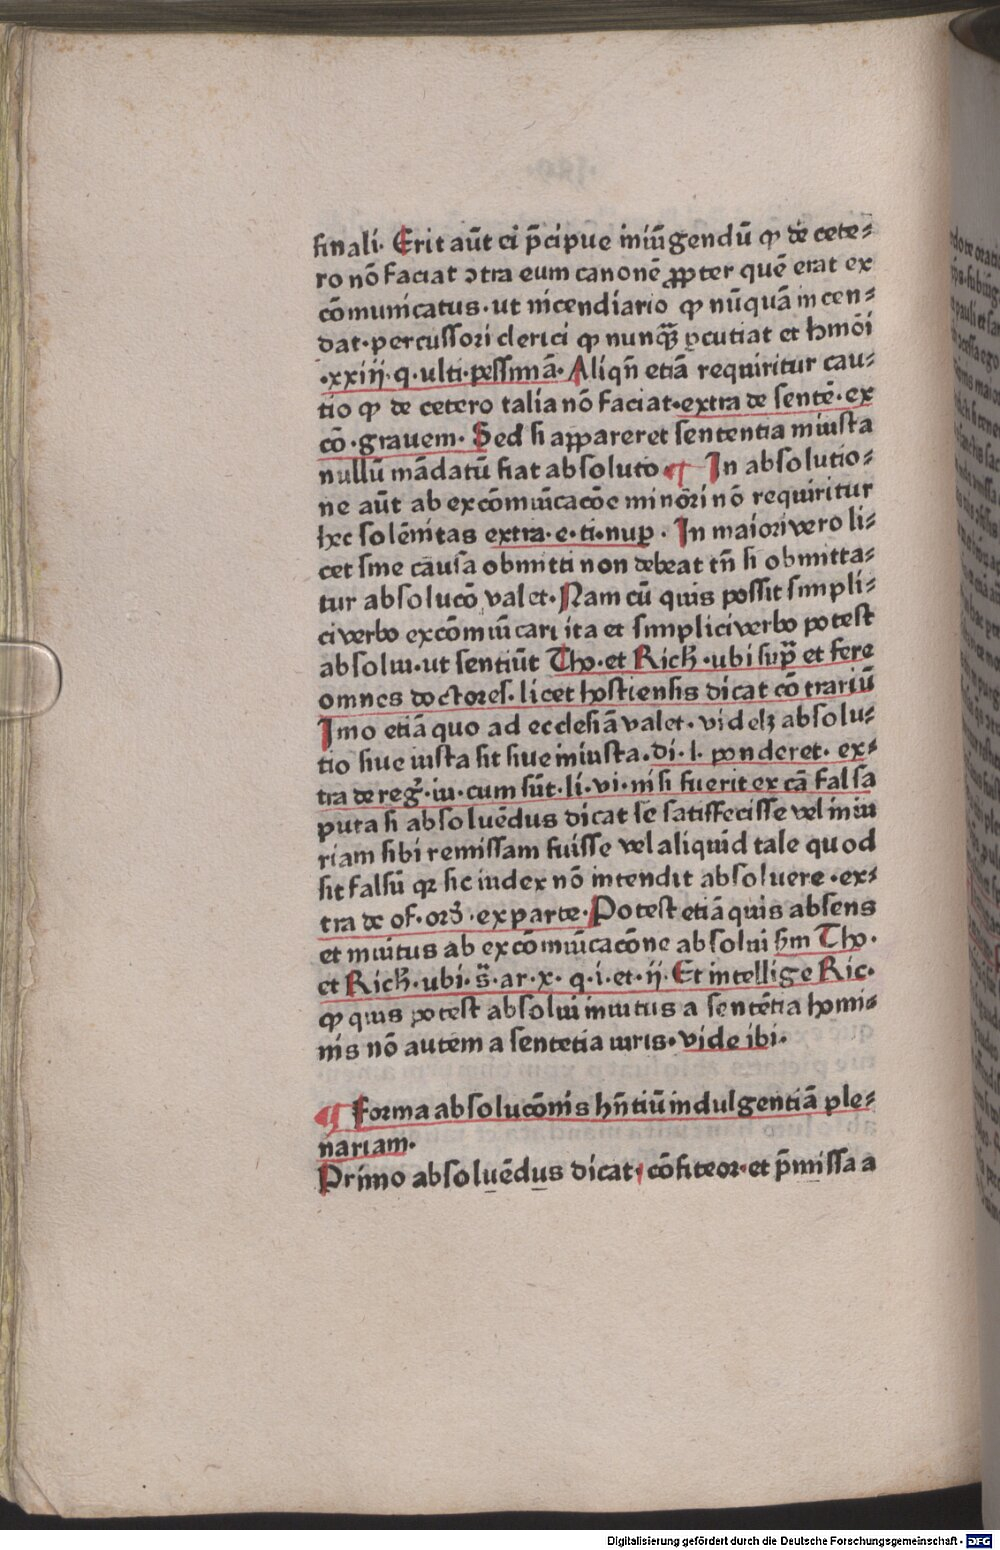 finali. Erit aūt ei p̄cipue iniūgendū ꝙ de cete⸗
ro nō faciat ↄtra eum canonē ꝓpter quē erat ex
cōmunicatus. ut incendiario ꝙ nūquā incen⸗
dat. percussori clerici ꝙ nunqꝫ̄ ꝑcutiat et hmōi
.xxiij. q. ulti. pessimā. Aliqn̄ etiā requiritur cau⸗
tio ꝙ de cetero talia nō faciat. extra de sentē. ex
cō. grauem. Sed si appareret sententia iniusta
nullū mādatū fiat absoluto. ¶ In absolutio⸗
ne aūt ab excōmūicacōe minori nō requiritur
hec solēnitas extra. e. ti. nuꝑ. In maiori vero li⸗
cet sine causa obmitti non debeat tn̄ si obmitta⸗
tur absolucō valet. Nam cū quis possit simpli⸗
ci verbo excōmūicari ita et simplici verbo potest
absolui. ut sentiūt Tho. et Rich̄. ubi sup̄ et fere
omnes doctores. licet hostiensis dicat cōtrariū
Imo etiā quo ad ecclesiā valet. videlꝫ absolu⸗
tio siue iusta sit siue iniusta. di. l. ponderet. ex⸗
tra de reg̕. iu. cum sūt. li. vi. nisi fuerit ex cā falsa
puta si absoluēdus dicat se satisfecisse vel iniu
riam sibi remissam fuisse vel aliquid tale quod
sit falsū qꝛ sic iudex nō intendit absoluere. ex⸗
tra de of. ord̕. ex parte. Potest etiā quis absens
et inuitus ab excōmūicacōne absolui sm̄ Tho.
et Rich̄. ubi. s̄. ar. x. q. i. et. ij. Et intellige Ric.
ꝙ quis potest absolui inuitus a sentētia homi⸗
nis nō autem a sentetia iuris. vide ibi.
¶ Forma absolucōnis hn̄tiū indulgentiā ple⸗
nariam.
Primo absoluēdus dicat. cōfiteor. et p̄missa a
Digitalisierung gefördert durch die Deutsche Forschungsgemeinschaft - DFG